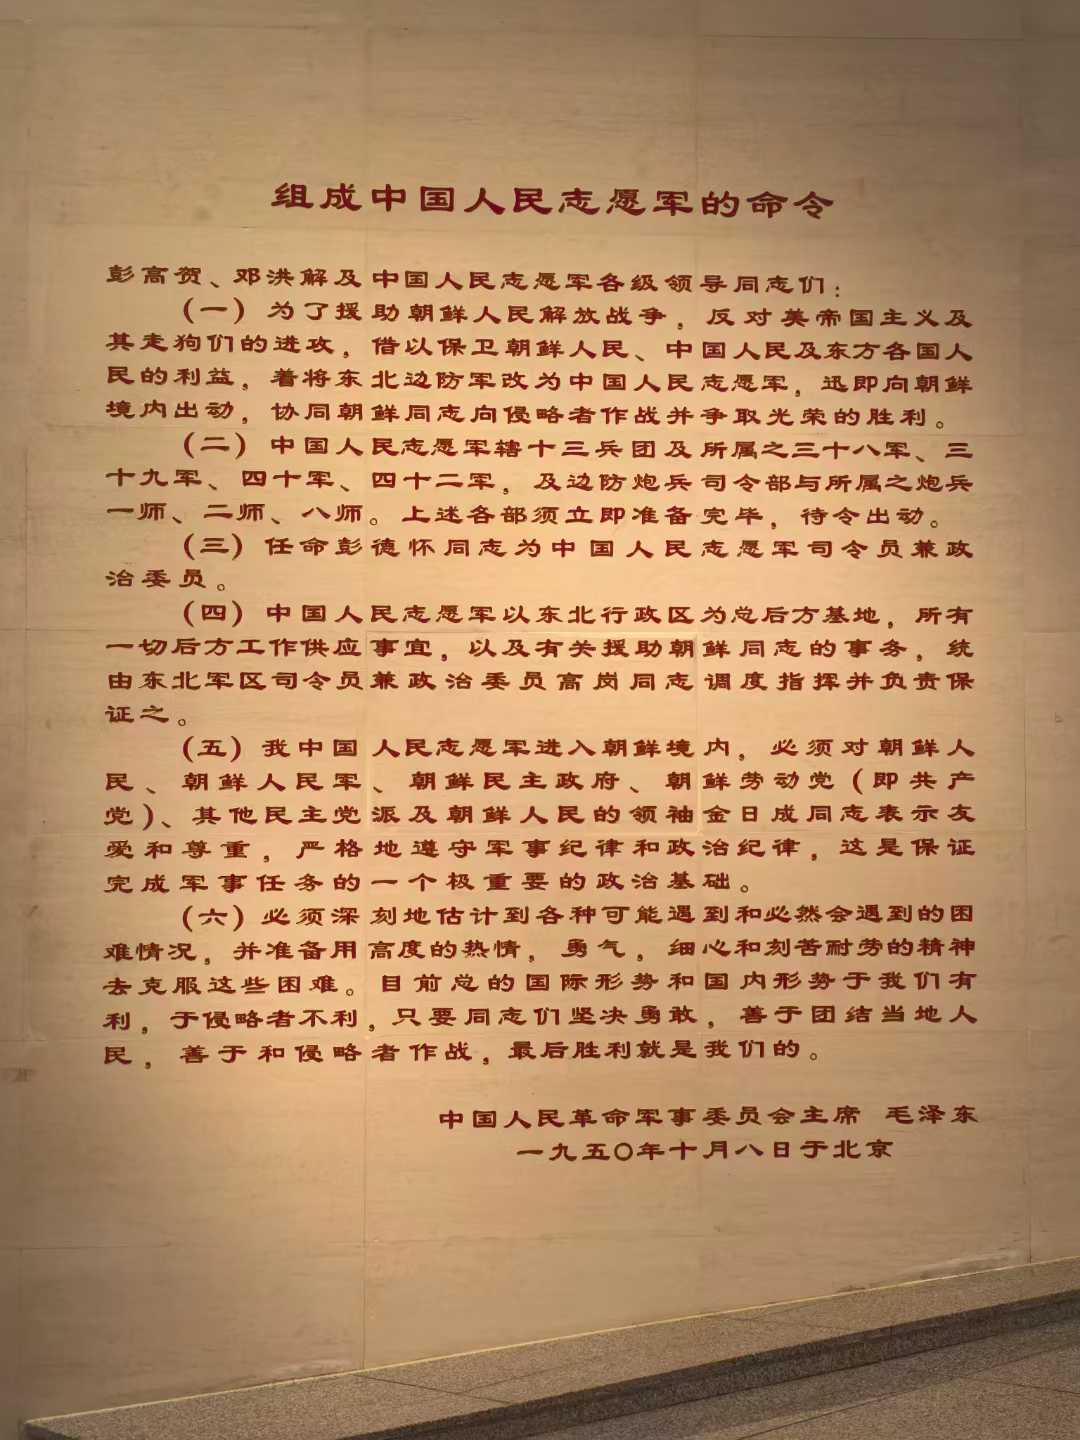 组成中国人民志愿军的命令
彭高贺、邓洪解及中国人民志愿军各级领导同志们：
（一）为了援助朝鲜人民解放战争，反对美帝国主义及
其走狗们的进攻，借以保卫朝鲜人民、中国人民及东方各国人
民的利益，着将东北边防军改为中国人民志愿军，迅即向朝鲜
境内出动，协同朝鲜同志向侵略者作战并争取光荣的胜利。
（二）中国人民志愿军辖十三兵团及所属之三十八军、三
十九军、四十军、四十二军，及边防炮兵司令部与所属之炮兵
一师、二师、八师。上述各部须立即准备完毕，待令出动。
（三）任命彭德怀同志为中国人民志愿军司令员兼政
治委员。
（四）中国人民志愿军以东北行政区为总后方基地，所有
一切后方工作供应事宜，以及有关援助朝鲜同志的事务，统
由东北军区司令员兼政治委员高岗同志调度指挥并负责保
证之。
（五）我中国人民志愿军进入朝鲜境内，必须对朝鲜人
民、朝鲜人民军、朝鲜民主政府、朝鲜劳动党（即共产
党）、其他民主党派及朝鲜人民的领袖金日成同志表示友
爱和尊重，严格地遵守军事纪律和政治纪律，这是保证
完成军事任务的一个极重要的政治基础。
（六）必须深刻地估计到各种可能遇到和必然会遇到的困
难情况，并准备用高度的热情，勇气，细心和刻苦耐劳的精神
去克服这些困难。目前总的国际形势和国内形势于我们有
利，于侵略者不利，只要同志们坚决勇敢，善于团结当地人
民，善于和侵略者作战，最后胜利就是我们的。
中国人民革命军事委员会主席 毛泽东
一九五〇年十月八日于北京